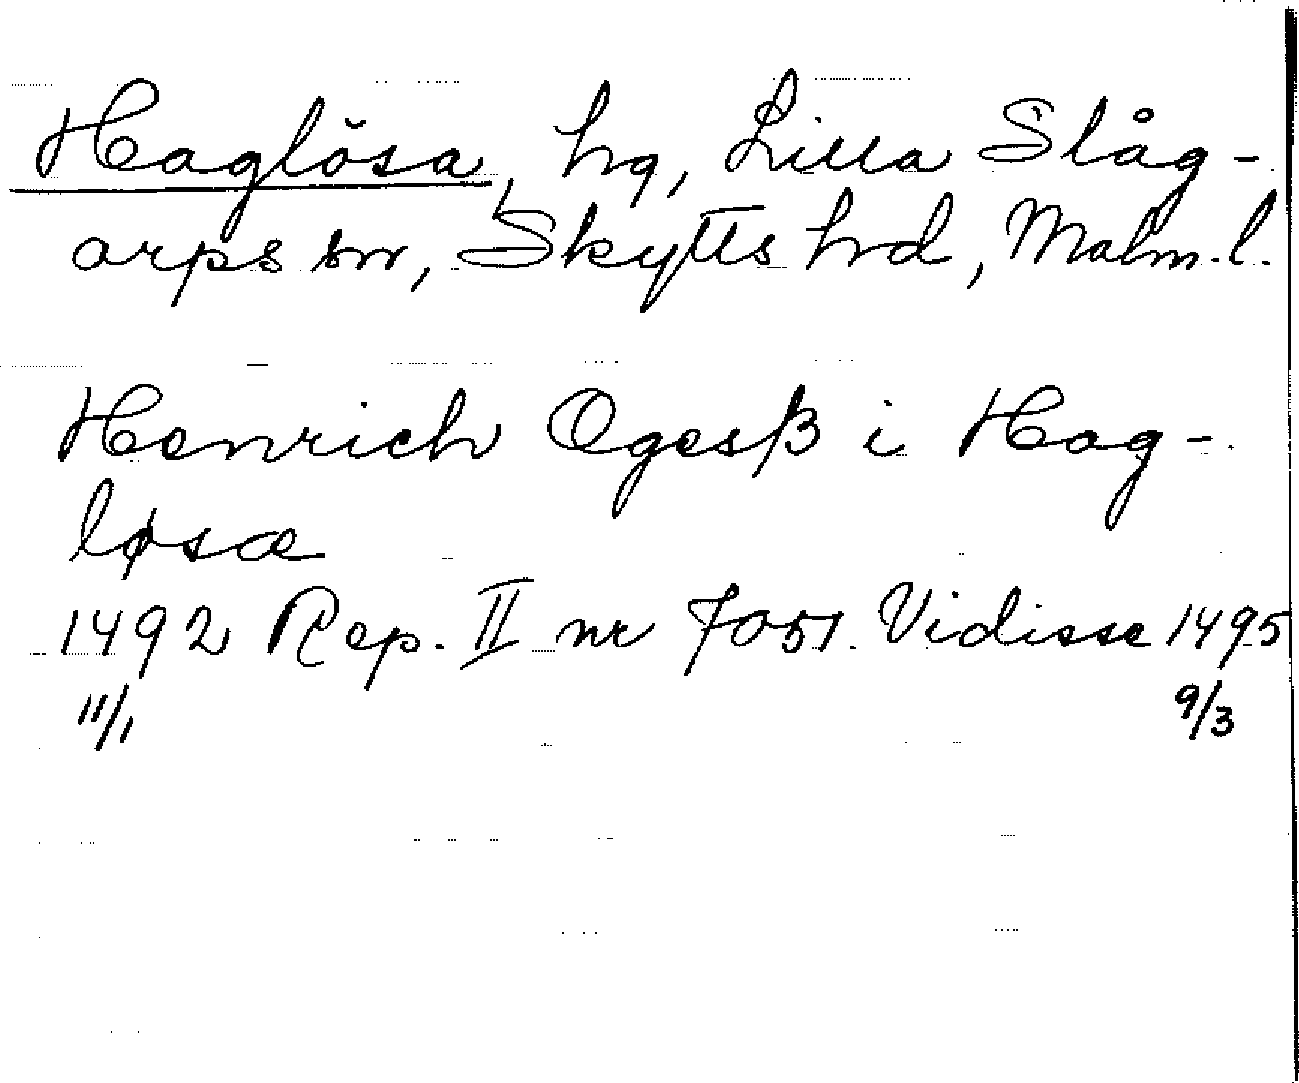 Haglösa, hg, Lilla Slåg-
arps sn, Skytts hrd, Malm.l.
Henrich Ogesß i Hag-
løsæ
1492 Rep. II nr 7051. Vidisse 1495
11/1 9/3